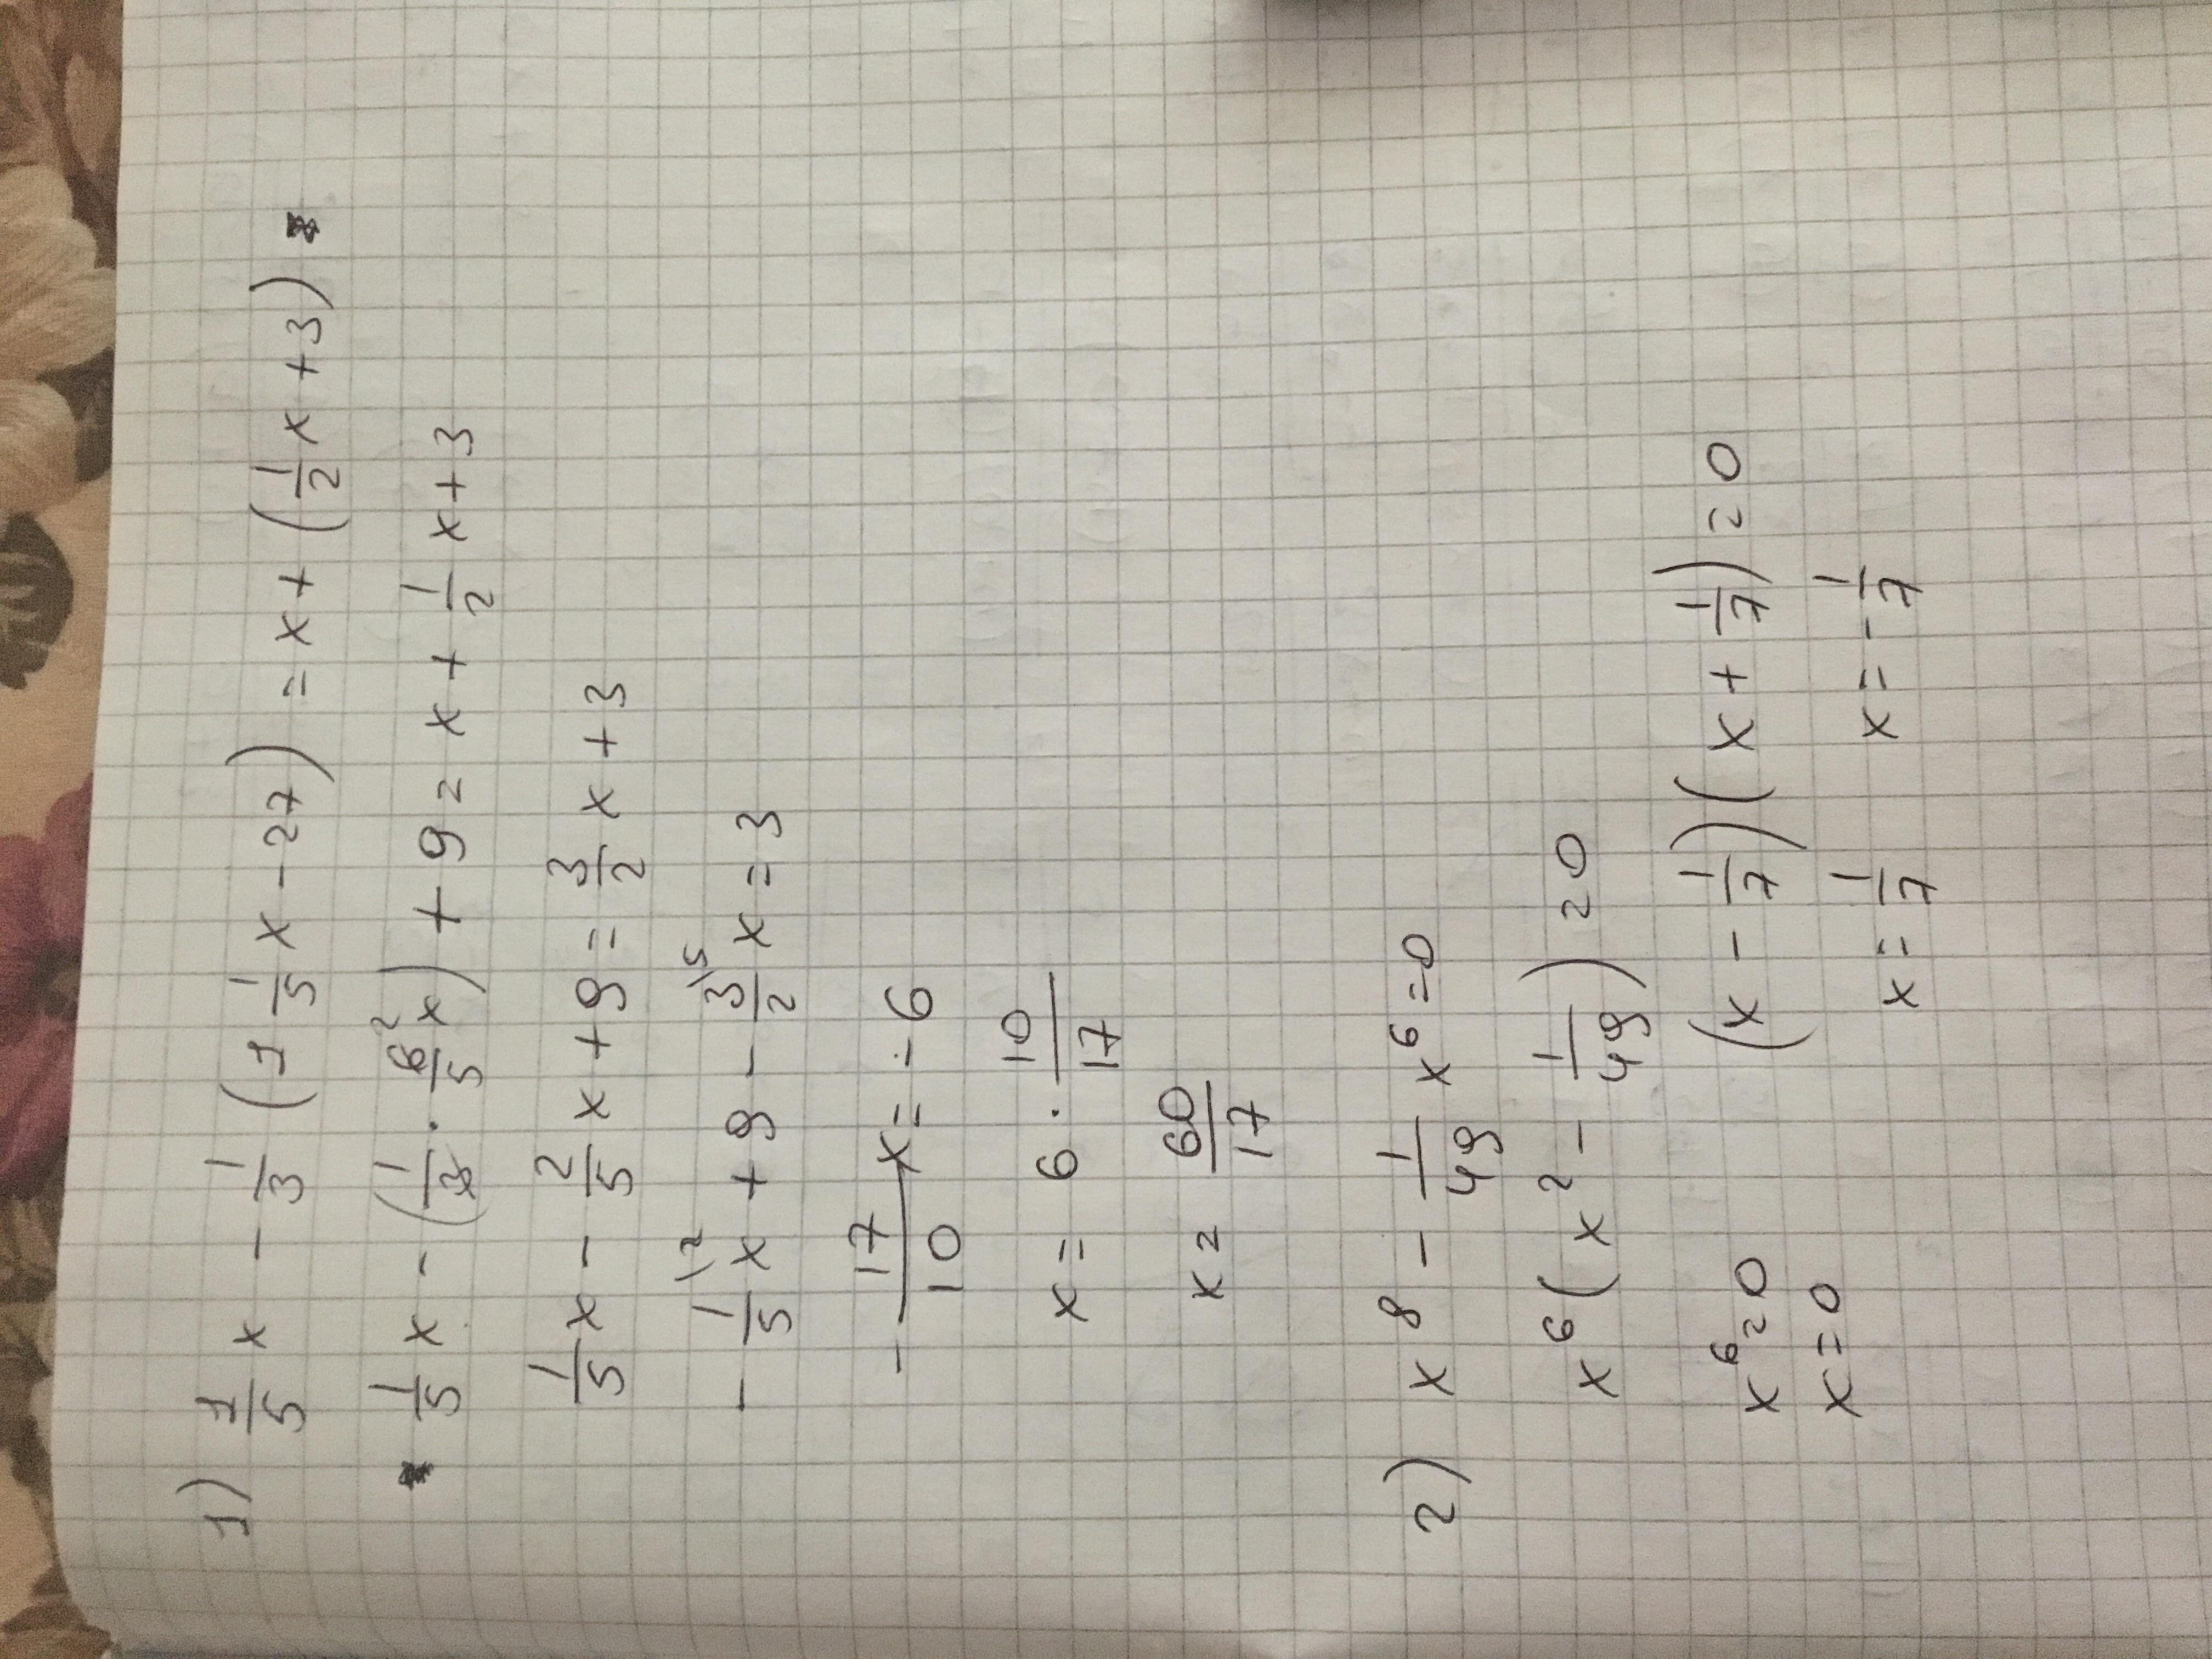 1) 1/5 x - 1/3 (1 1/5 x - 27) = x + (1/2 x + 3)
1/5 x - (1/3 · 6/5 x) + 9 = x + 1/2 x + 3
1/5 x - 2/5 x + 9 = 3/2 x + 3
- 1/5 \2 x + 9 - 3/2 \5 x = 3
- 17/10 x = - 6
x = 6 · 10/17
x = 60/17
2) x⁸ - 1/49 x⁶ = 0
x⁶ (x² - 1/49) = 0
x⁶ = 0 (x - 1/7) (x + 1/7) = 0
x = 0 x = 1/7 x = - 1/7